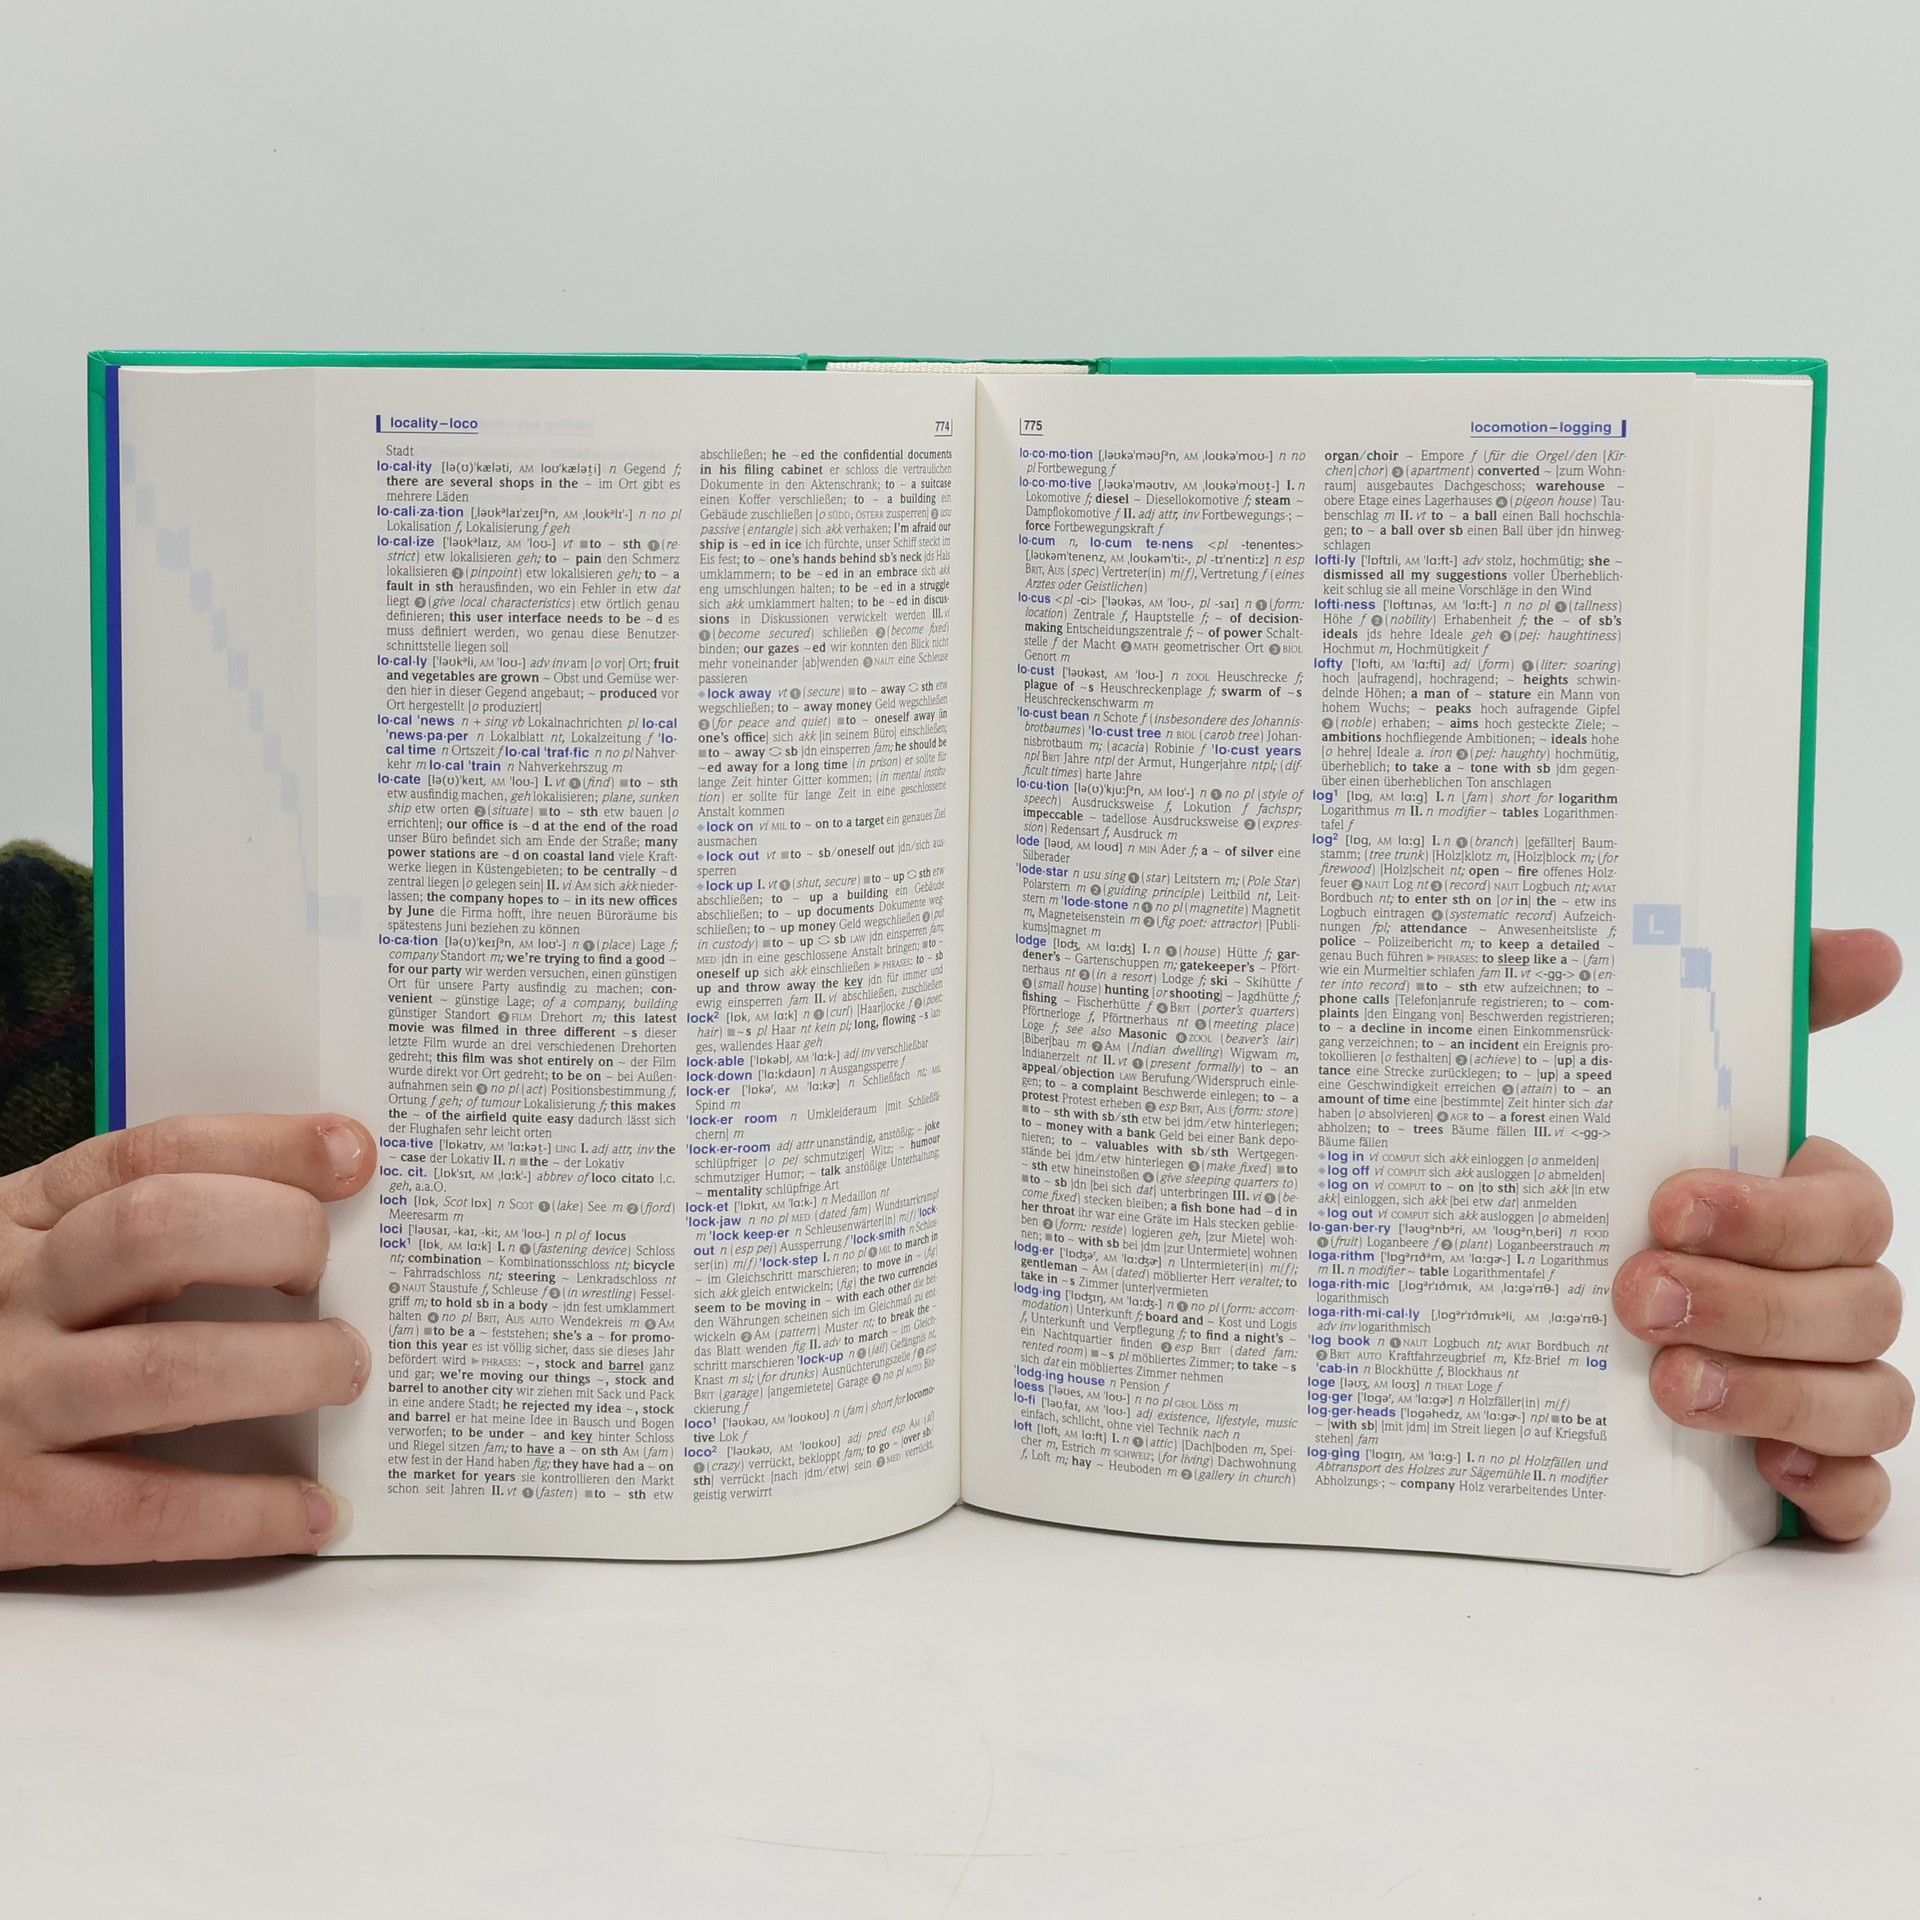 locality–loco
774
Stadt
lo·cal·ity [lə(ʊ)ˈkæləti, AM loʊˈkæləţi] n Gegend f;
there are several shops in the ~ im Ort gibt es
mehrere Läden
lo·cali·za·tion [ˌləʊkᵊlaɪˈzeɪʃᵊn, AM ˌloʊkᵊlɪˈ-] n no pl
Lokalisation f, Lokalisierung f geh
lo·cal·ize [ˈləʊkᵊlaɪz, AM ˈloʊ-] vt ■to ~ sth ❶ (re-
strict) etw lokalisieren geh; to ~ pain den Schmerz
lokalisieren ❷ (pinpoint) etw lokalisieren geh; to ~ a
fault in sth herausfinden, wo ein Fehler in etw dat
liegt ❸ (give local characteristics) etw örtlich genau
definieren; this user interface needs to be ~d es
muss definiert werden, wo genau diese Benutzer-
schnittstelle liegen soll
lo·cal·ly [ˈləʊkᵊli, AM ˈloʊ-] adv inv am [o vor] Ort; fruit
and vegetables are grown ~ Obst und Gemüse wer-
den hier in dieser Gegend angebaut; ~ produced vor
Ort hergestellt [o produziert]
lo·cal ˈnews n + sing vb Lokalnachrichten pl lo·cal
ˈnews·pa·per n Lokalblatt nt, Lokalzeitung f ˈlo-
cal time n Ortszeit f lo·cal ˈtraf·fic n no pl Nahver-
kehr m lo·cal ˈtrain n Nahverkehrszug m
lo·cate [lə(ʊ)ˈkeɪt, AM ˈloʊ-] I. vt ❶ (find) ■to ~ sth
etw ausfindig machen, geh lokalisieren; plane, sunken
ship etw orten ❷ (situate) ■to ~ sth etw bauen [o
errichten]; our office is ~d at the end of the road
unser Büro befindet sich am Ende der Straße; many
power stations are ~d on coastal land viele Kraft-
werke liegen in Küstengebieten; to be centrally ~d
zentral liegen [o gelegen sein] II. vi AM sich akk nieder-
lassen; the company hopes to ~ in its new offices
by June die Firma hofft, ihre neuen Büroräume bis
spätestens Juni beziehen zu können
lo·ca·tion [lə(ʊ)ˈkeɪʃᵊn, AM loʊˈ-] n ❶ (place) Lage f;
company Standort m; we're trying to find a good ~
for our party wir werden versuchen, einen günstigen
Ort für unsere Party ausfindig zu machen; con-
venient ~ günstige Lage; of a company, building
günstiger Standort ❷ FILM Drehort m; this latest
movie was filmed in three different ~s dieser
letzte Film wurde an drei verschiedenen Drehorten
gedreht; this film was shot entirely on ~ der Film
wurde direkt vor Ort gedreht; to be on ~ bei Außen-
aufnahmen sein ❸ no pl (act) Positionsbestimmung f,
Ortung f geh; of tumour Lokalisierung f; this makes
the ~ of the airfield quite easy dadurch lässt sich
der Flughafen sehr leicht orten
loca·tive [ˈlɒkətɪv, AM ˈlɑ:kəţ-] LING I. adj attr, inv the
~ case der Lokativ II. n ■the ~ der Lokativ
loc. cit. [ˌlɒkˈsɪt, AM ˌlɑ:kˈ-] abbrev of loco citato l.c.
geh, a.a.O.
loch [lɒk, Scot lɒx] n SCOT ❶ (lake) See m ❷ (fjord)
Meeresarm m
loci [ˈləʊsaɪ, -kaɪ, -ki:, AM ˈloʊ-] n pl of locus
lock¹ [lɒk, AM lɑ:k] I. n ❶ (fastening device) Schloss
nt; combination ~ Kombinationsschloss nt; bicycle
~ Fahrradschloss nt; steering ~ Lenkradschloss nt
❷ NAUT Staustufe f, Schleuse f ❸ (in wrestling) Fessel-
griff m; to hold sb in a body ~ jdn fest umklammert
halten ❹ no pl BRIT, AUS AUTO Wendekreis m ❺ AM
(fam) ■to be a ~ feststehen; she's a ~ for promo-
tion this year es ist völlig sicher, dass sie dieses Jahr
befördert wird ▶ PHRASES: ~, stock and barrel ganz
und gar; we're moving our things ~, stock and
barrel to another city wir ziehen mit Sack und Pack
in eine andere Stadt; he rejected my idea ~, stock
and barrel er hat meine Idee in Bausch und Bogen
verworfen; to be under ~ and key hinter Schloss
und Riegel sitzen fam; to have a ~ on sth AM (fam)
etw fest in der Hand haben fig; they have had a ~ on
the market for years sie kontrollieren den Markt
schon seit Jahren II. vt ❶ (fasten) ■to ~ sth etw
abschließen; he ~ed the confidential documents
in his filing cabinet er schloss die vertraulichen
Dokumente in den Aktenschrank; to ~ a suitcase
einen Koffer verschließen; to ~ a building ein
Gebäude zuschließen [o SÜDD, ÖSTERR zusperren] ❷ usu
passive (entangle) sich akk verhaken; I'm afraid our
ship is ~ed in ice ich fürchte, unser Schiff steckt im
Eis fest; to ~ one's hands behind sb's neck jds Hals
umklammern; to be ~ed in an embrace sich akk
eng umschlungen halten; to be ~ed in a struggle
sich akk umklammert halten; to be ~ed in discus-
sions in Diskussionen verwickelt werden III. vi
❶ (become secured) schließen ❷ (become fixed)
binden; our gazes ~ed wir konnten den Blick nicht
mehr voneinander [ab]wenden ❸ NAUT eine Schleuse
passieren
◆lock away vt ❶ (secure) ■to ~ away ⟳ sth etw
wegschließen; to ~ away money Geld wegschließen
❷ (for peace and quiet) ■to ~ oneself away [in
one's office] sich akk [in seinem Büro] einschließen;
■to ~ away ⟳ sb jdn einsperren fam; he should be
~ed away for a long time (in prison) er sollte für
lange Zeit hinter Gitter kommen; (in mental institu-
tion) er sollte für lange Zeit in eine geschlossene
Anstalt kommen
◆lock on vi MIL to ~ on to a target ein genaues Ziel
ausmachen
◆lock out vt ■to ~ sb/oneself out jdn/sich aus-
sperren
◆lock up I. vt ❶ (shut, secure) ■to ~ up ⟳ sth etw
abschließen; to ~ up a building ein Gebäude
abschließen; to ~ up documents Dokumente weg-
schließen; to ~ up money Geld wegschließen ❷ (put
in custody) ■to ~ up ⟳ sb LAW jdn einsperren fam;
MED jdn in eine geschlossene Anstalt bringen; ■to ~
oneself up sich akk einschließen ▶ PHRASES: to ~ sb
up and throw away the key jdn für immer und
ewig einsperren fam II. vi abschließen, zuschließen
lock² [lɒk, AM lɑ:k] n ❶ (curl) [Haar]locke f ❷ (poet:
hair) ■~s pl Haar nt kein pl; long, flowing ~s lan-
ges, wallendes Haar geh
lock·able [ˈlɒkəbl̩, AM ˈlɑ:k-] adj inv verschließbar
lock·down [ˈlɑ:kdaʊn] n Ausgangssperre f
lock·er [ˈlɒkəʳ, AM ˈlɑ:kɚ] n Schließfach nt; MIL
Spind m
ˈlock·er room n Umkleideraum [mit Schließfä-
chern] m
ˈlock·er-room adj attr unanständig, anstößig; ~ joke
schlüpfriger [o pej schmutziger] Witz; ~ humour
schmutziger Humor; ~ talk anstößige Unterhaltung;
~ mentality schlüpfrige Art
lock·et [ˈlɒkɪt, AM ˈlɑ:k-] n Medaillon nt
ˈlock·jaw n no pl MED (dated fam) Wundstarrkrampf
m ˈlock keep·er n Schleusenwärter(in) m(f) ˈlock-
out n (esp pej) Aussperrung f ˈlock·smith n Schlos-
ser(in) m(f) ˈlock·step I. n no pl ❶ MIL to march in
~ im Gleichschritt marschieren; to move in ~ (fig)
sich akk gleich entwickeln; (fig) the two currencies
seem to be moving in ~ with each other die bei-
den Währungen scheinen sich im Gleichmaß zu ent-
wickeln ❷ AM (pattern) Muster nt; to break the ~
das Blatt wenden fig II. adv to march ~ im Gleich-
schritt marschieren ˈlock-up n ❶ (jail) Gefängnis nt,
Knast m sl; (for drunks) Ausnüchterungszelle f ❷ esp
BRIT (garage) [angemietete] Garage ❸ no pl AUTO Blo-
ckierung f
loco¹ [ˈləʊkəʊ, AM ˈloʊkoʊ] n (fam) short for locomo-
tive Lok f
loco² [ˈləʊkəʊ, AM ˈloʊkoʊ] adj pred esp AM (sl)
❶ (crazy) verrückt, bekloppt fam; to go ~ [over sb/
sth] verrückt [nach jdm/etw] sein ❷ MED verrückt,
geistig verwirrt
775
locomotion–logging
lo·co·mo·tion [ˌləʊkəˈməʊʃᵊn, AM ˌloʊkəˈmoʊ-] n no
pl Fortbewegung f
lo·co·mo·tive [ˌləʊkəˈməʊtɪv, AM ˌloʊkəˈmoʊţ-] I. n
Lokomotive f; diesel ~ Diesellokomotive f; steam ~
Dampflokomotive f II. adj attr, inv Fortbewegungs-; ~
force Fortbewegungskraft f
lo·cum n, lo·cum te·nens <pl -tenentes>
[ˌləʊkəmˈtenenz, AM ˌloʊkəmˈti:-, pl -tɪˈnenti:z] n esp
BRIT, AUS (spec) Vertreter(in) m(f), Vertretung f (eines
Arztes oder Geistlichen)
lo·cus <pl -ci> [ˈləʊkəs, AM ˈloʊ-, pl -saɪ] n ❶ (form:
location) Zentrale f, Hauptstelle f; ~ of decision-
making Entscheidungszentrale f; ~ of power Schalt-
stelle f der Macht ❷ MATH geometrischer Ort ❸ BIOL
Genort m
lo·cust [ˈləʊkəst, AM ˈloʊ-] n ZOOL Heuschrecke f;
plague of ~s Heuschreckenplage f; swarm of ~s
Heuschreckenschwarm m
ˈlo·cust bean n Schote f (insbesondere des Johannis-
brotbaumes) ˈlo·cust tree n BIOL (carob tree) Johan-
nisbrotbaum m; (acacia) Robinie f ˈlo·cust years
npl BRIT Jahre ntpl der Armut, Hungerjahre ntpl; (dif-
ficult times) harte Jahre
lo·cu·tion [lə(ʊ)ˈkju:ʃᵊn, AM loʊˈ-] n ❶ no pl (style of
speech) Ausdrucksweise f, Lokution f fachspr;
impeccable ~ tadellose Ausdrucksweise ❷ (expres-
sion) Redensart f, Ausdruck m
lode [ləʊd, AM loʊd] n MIN Ader f; a ~ of silver eine
Silberader
ˈlode·star n usu sing ❶ (star) Leitstern m; (Pole Star)
Polarstern m ❷ (guiding principle) Leitbild nt, Leit-
stern m ˈlode·stone n ❶ no pl (magnetite) Magnetit
m, Magneteisenstein m ❷ (fig poet: attractor) [Publi-
kums]magnet m
lodge [lɒdʒ, AM lɑ:dʒ] I. n ❶ (house) Hütte f; gar-
dener's ~ Gartenschuppen m; gatekeeper's ~ Pfört-
nerhaus nt ❷ (in a resort) Lodge f; ski ~ Skihütte f
❸ (small house) hunting [or shooting] ~ Jagdhütte f;
fishing ~ Fischerhütte f ❹ BRIT (porter's quarters)
Pförtnerloge f, Pförtnerhaus nt ❺ (meeting place)
Loge f; see also Masonic ❻ ZOOL (beaver's lair)
[Biber]bau m ❼ AM (Indian dwelling) Wigwam m,
Indianerzelt nt II. vt ❶ (present formally) to ~ an
appeal/objection LAW Berufung/Widerspruch einle-
gen; to ~ a complaint Beschwerde einlegen; to ~ a
protest Protest erheben ❷ esp BRIT, AUS (form: store)
■to ~ sth with sb/sth etw bei jdm/etw hinterlegen;
to ~ money with a bank Geld bei einer Bank depo-
nieren; to ~ valuables with sb/sth Wertgegen-
stände bei jdm/etw hinterlegen ❸ (make fixed) ■to
~ sth etw hineinstoßen ❹ (give sleeping quarters to)
■to ~ sb jdn [bei sich dat] unterbringen III. vi ❶ (be-
come fixed) stecken bleiben; a fish bone had ~d in
her throat ihr war eine Gräte im Hals stecken geblie-
ben ❷ (form: reside) logieren geh, [zur Miete] woh-
nen; ■to ~ with sb bei jdm [zur Untermiete] wohnen
lodg·er [ˈlɒdʒəʳ, AM ˈlɑ:dʒɚ] n Untermieter(in) m(f);
gentleman ~ AM (dated) möblierter Herr veraltet; to
take in ~s Zimmer [unter]vermieten
lodg·ing [ˈlɒdʒɪŋ, AM ˈlɑ:dʒ-] n ❶ no pl (form: accom-
modation) Unterkunft f; board and ~ Kost und Logis
f, Unterkunft und Verpflegung f; to find a night's ~
ein Nachtquartier finden ❷ esp BRIT (dated fam:
rented room) ■~s pl möbliertes Zimmer; to take ~s
sich dat ein möbliertes Zimmer nehmen
ˈlodg·ing house n Pension f
loess [ˈləʊes, AM ˈloʊ-] n no pl GEOL Löss m
lo-fi [ˈləʊˌfaɪ, AM ˈloʊ-] adj existence, lifestyle, music
einfach, schlicht, ohne viel Technik nach n
loft [lɒft, AM lɑ:ft] I. n ❶ (attic) [Dach]boden m, Spei-
cher m, Estrich m SCHWEIZ; (for living) Dachwohnung
f, Loft m; hay ~ Heuboden m ❷ (gallery in church)
organ/choir ~ Empore f (für die Orgel/den [Kir-
chen]chor) ❸ (apartment) converted ~ [zum Wohn-
raum] ausgebautes Dachgeschoss; warehouse ~
obere Etage eines Lagerhauses ❹ (pigeon house) Tau-
benschlag m II. vt to ~ a ball einen Ball hochschla-
gen; to ~ a ball over sb einen Ball über jdn hinweg-
schlagen
lofti·ly [ˈlɒftɪli, AM ˈlɑ:ft-] adv stolz, hochmütig; she ~
dismissed all my suggestions voller Überheblich-
keit schlug sie all meine Vorschläge in den Wind
lofti·ness [ˈlɒftɪnəs, AM ˈlɑ:ft-] n no pl ❶ (tallness)
Höhe f ❷ (nobility) Erhabenheit f; the ~ of sb's
ideals jds hehre Ideale geh ❸ (pej: haughtiness)
Hochmut m, Hochmütigkeit f
lofty [ˈlɒfti, AM ˈlɑ:fti] adj (form) ❶ (liter: soaring)
hoch [aufragend], hochragend; ~ heights schwin-
delnde Höhen; a man of ~ stature ein Mann von
hohem Wuchs; ~ peaks hoch aufragende Gipfel
❷ (noble) erhaben; ~ aims hoch gesteckte Ziele; ~
ambitions hochfliegende Ambitionen; ~ ideals hohe
[o hehre] Ideale a. iron ❸ (pej: haughty) hochmütig,
überheblich; to take a ~ tone with sb jdm gegen-
über einen überheblichen Ton anschlagen
log¹ [lɒg, AM lɑ:g] I. n (fam) short for logarithm
Logarithmus m II. n modifier ~ tables Logarithmen-
tafel f
log² [lɒg, AM lɑ:g] I. n ❶ (branch) [gefällter] Baum-
stamm; (tree trunk) [Holz]klotz m, [Holz]block m; (for
firewood) [Holz]scheit nt; open ~ fire offenes Holz-
feuer ❷ NAUT Log nt ❸ (record) NAUT Logbuch nt; AVIAT
Bordbuch nt; to enter sth on [or in] the ~ etw ins
Logbuch eintragen ❹ (systematic record) Aufzeich-
nungen fpl; attendance ~ Anwesenheitsliste f;
police ~ Polizeibericht m; to keep a detailed ~
genau Buch führen ▶ PHRASES: to sleep like a ~ (fam)
wie ein Murmeltier schlafen fam II. vt <-gg-> ❶ (en-
ter into record) ■to ~ sth etw aufzeichnen; to ~
phone calls [Telefon]anrufe registrieren; to ~ com-
plaints [den Eingang von] Beschwerden registrieren;
to ~ a decline in income einen Einkommensrück-
gang verzeichnen; to ~ an incident ein Ereignis pro-
tokollieren [o festhalten] ❷ (achieve) to ~ [up] a dis-
tance eine Strecke zurücklegen; to ~ [up] a speed
eine Geschwindigkeit erreichen ❸ (attain) to ~ an
amount of time eine [bestimmte] Zeit hinter sich dat
haben [o absolvieren] ❹ AGR to ~ a forest einen Wald
abholzen; to ~ trees Bäume fällen III. vi <-gg->
Bäume fällen
◆log in vi COMPUT sich akk einloggen [o anmelden]
◆log off vi COMPUT sich akk ausloggen [o abmelden]
◆log on vi COMPUT to ~ on [to sth] sich akk [in etw
akk] einloggen, sich akk [bei etw dat] anmelden
◆log out vi COMPUT sich akk ausloggen [o abmelden]
lo·gan·ber·ry [ˈləʊgᵊnbᵊri, AM ˈloʊgᵊnˌberi] n FOOD
❶ (fruit) Loganbeere f ❷ (plant) Loganbeerstrauch m
loga·rithm [ˈlɒgᵊrɪðᵊm, AM ˈlɑ:gɚ-] I. n Logarithmus
m II. n modifier ~ table Logarithmentafel f
loga·rith·mic [ˌlɒgᵊrˈɪðmɪk, AM ˌlɑ:gɚˈrɪθ-] adj inv
logarithmisch
loga·rith·mi·cal·ly [ˌlɒgᵊrˈɪðmɪkᵊli, AM ˌlɑ:gɚˈrɪθ-]
adv inv logarithmisch
ˈlog book n ❶ NAUT Logbuch nt; AVIAT Bordbuch nt
❷ BRIT AUTO Kraftfahrzeugbrief m, Kfz-Brief m log
ˈcab·in n Blockhütte f, Blockhaus nt
loge [ləʊʒ, AM loʊʒ] n THEAT Loge f
log·ger [ˈlɒgəʳ, AM ˈlɑ:gɚ] n Holzfäller(in) m(f)
log·ger·heads [ˈlɒgəhedz, AM ˈlɑ:gɚ-] npl ■to be at
~ [with sb] [mit jdm] im Streit liegen [o auf Kriegsfuß
stehen] fam
log·ging [ˈlɒgɪŋ, AM ˈlɑ:g-] I. n no pl Holzfällen und
Abtransport des Holzes zur Sägemühle II. n modifier
Abholzungs-; ~ company Holz verarbeitendes Unter-
L